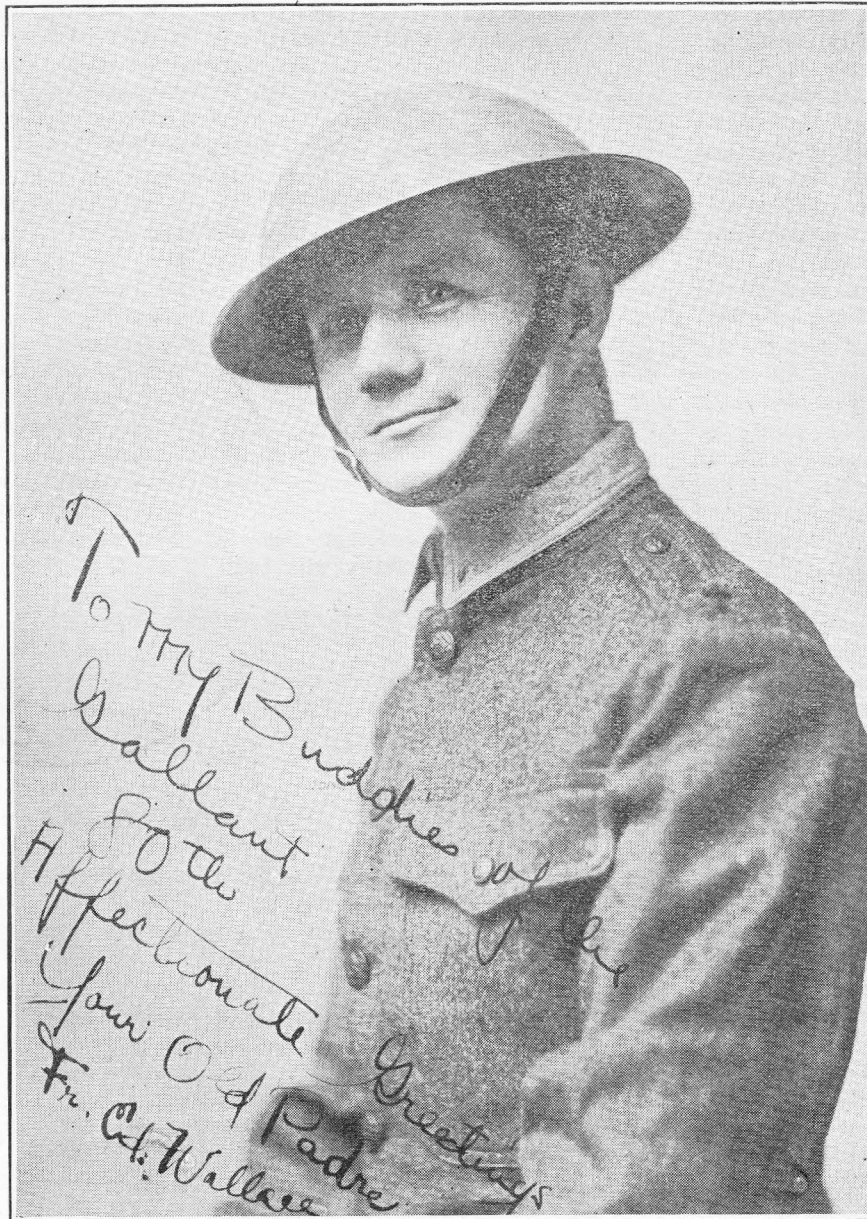 To My Buddies of the
Gallant
80th
Affectionate Greetings
Your Old Padre
Fr. Ed. Wallace